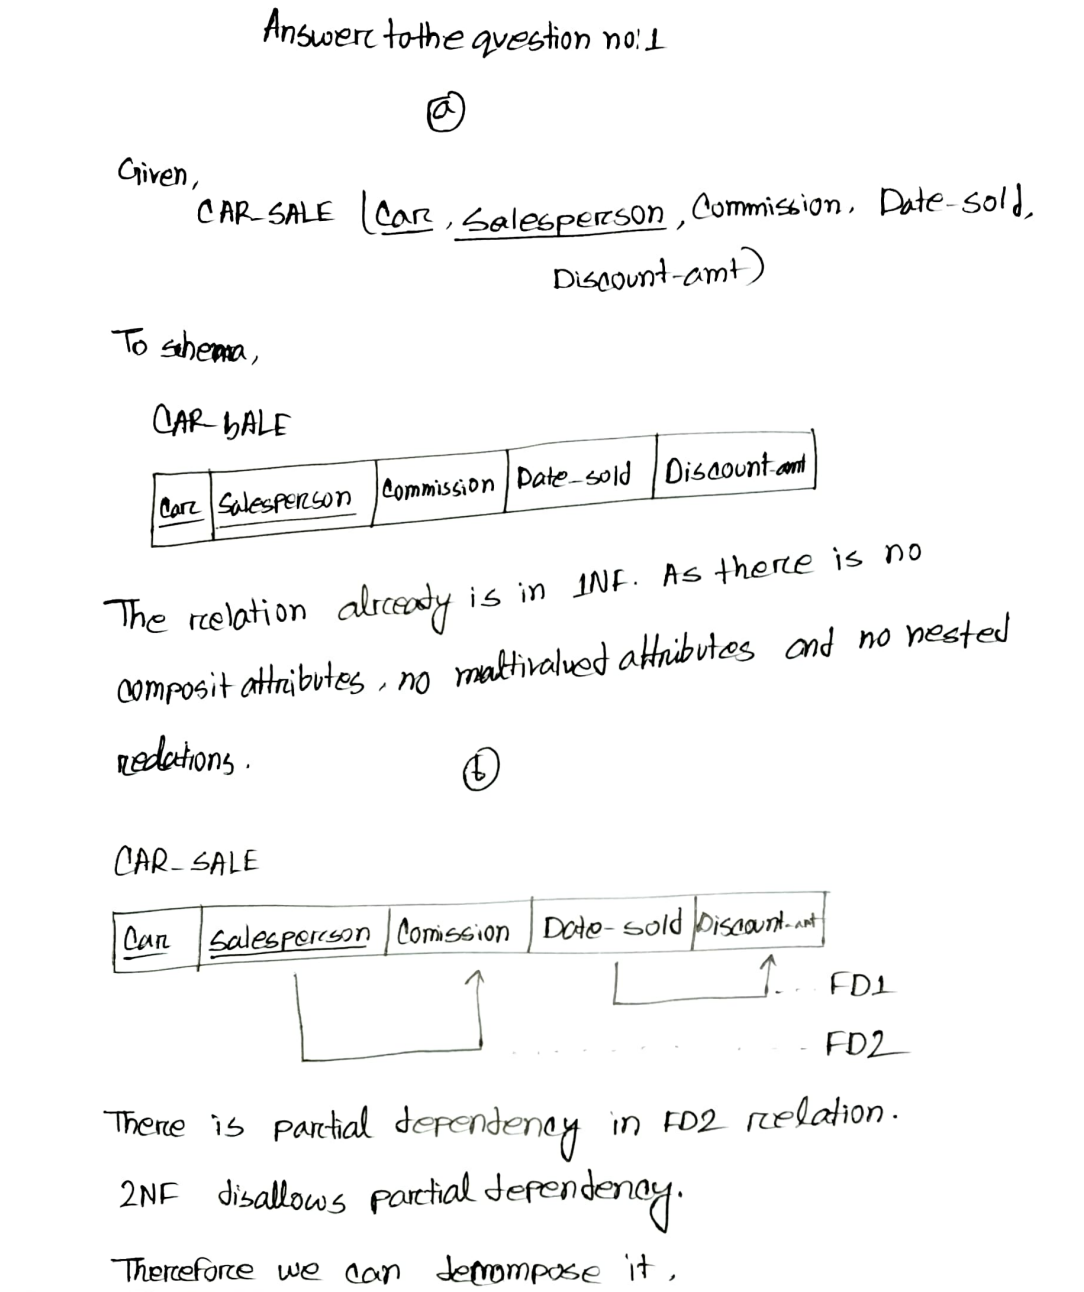 Answer to the question no: 1
(a)
Given,
CAR_SALE (Car, Salesperson, Commission, Date-sold,
Discount-amt)
To schema,
CAR-SALE
Car Salesperson Commission Date-sold Discount-amt
The relation already is in 1NF. As there is no
composit attributes, no maltivalued attributes and no nested
redations.
(b)
CAR-SALE
Car Salesperson Comission Date-sold Discount-amt
FD1
FD2
There is partial dependency in FD2 relation.
2NF disallows partial dependency.
Therefore we can decompose it.